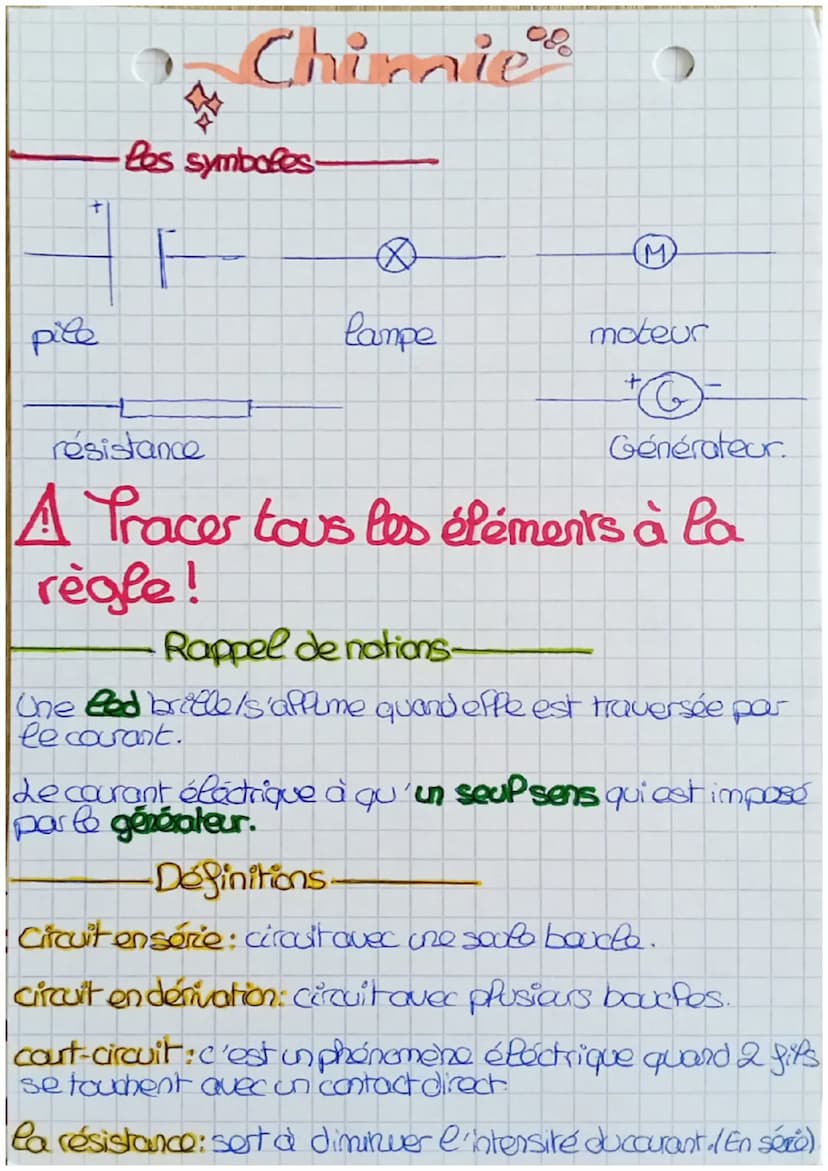 Chimie
les symboles
+
M
pile lampe moteur
+ G -
résistance Générateur.
⚠ Tracer tous les éléments à la
règle !
Rappel de notions
Une led brille/s'allume quand elle est traversée par
le courant.
Le courant éléctrique à qu'un seul sens qui est imposé
par le générateur.
Définitions
Circuit en série : circuit avec une seule boucle.
circuit en dérivation : circuit avec plusieurs boucles.
court-circuit : c'est un phénomène éléctrique quand 2 fils
se touchent avec un contact direct.
la résistance : sert à diminuer l'intensité du courant. (En série)